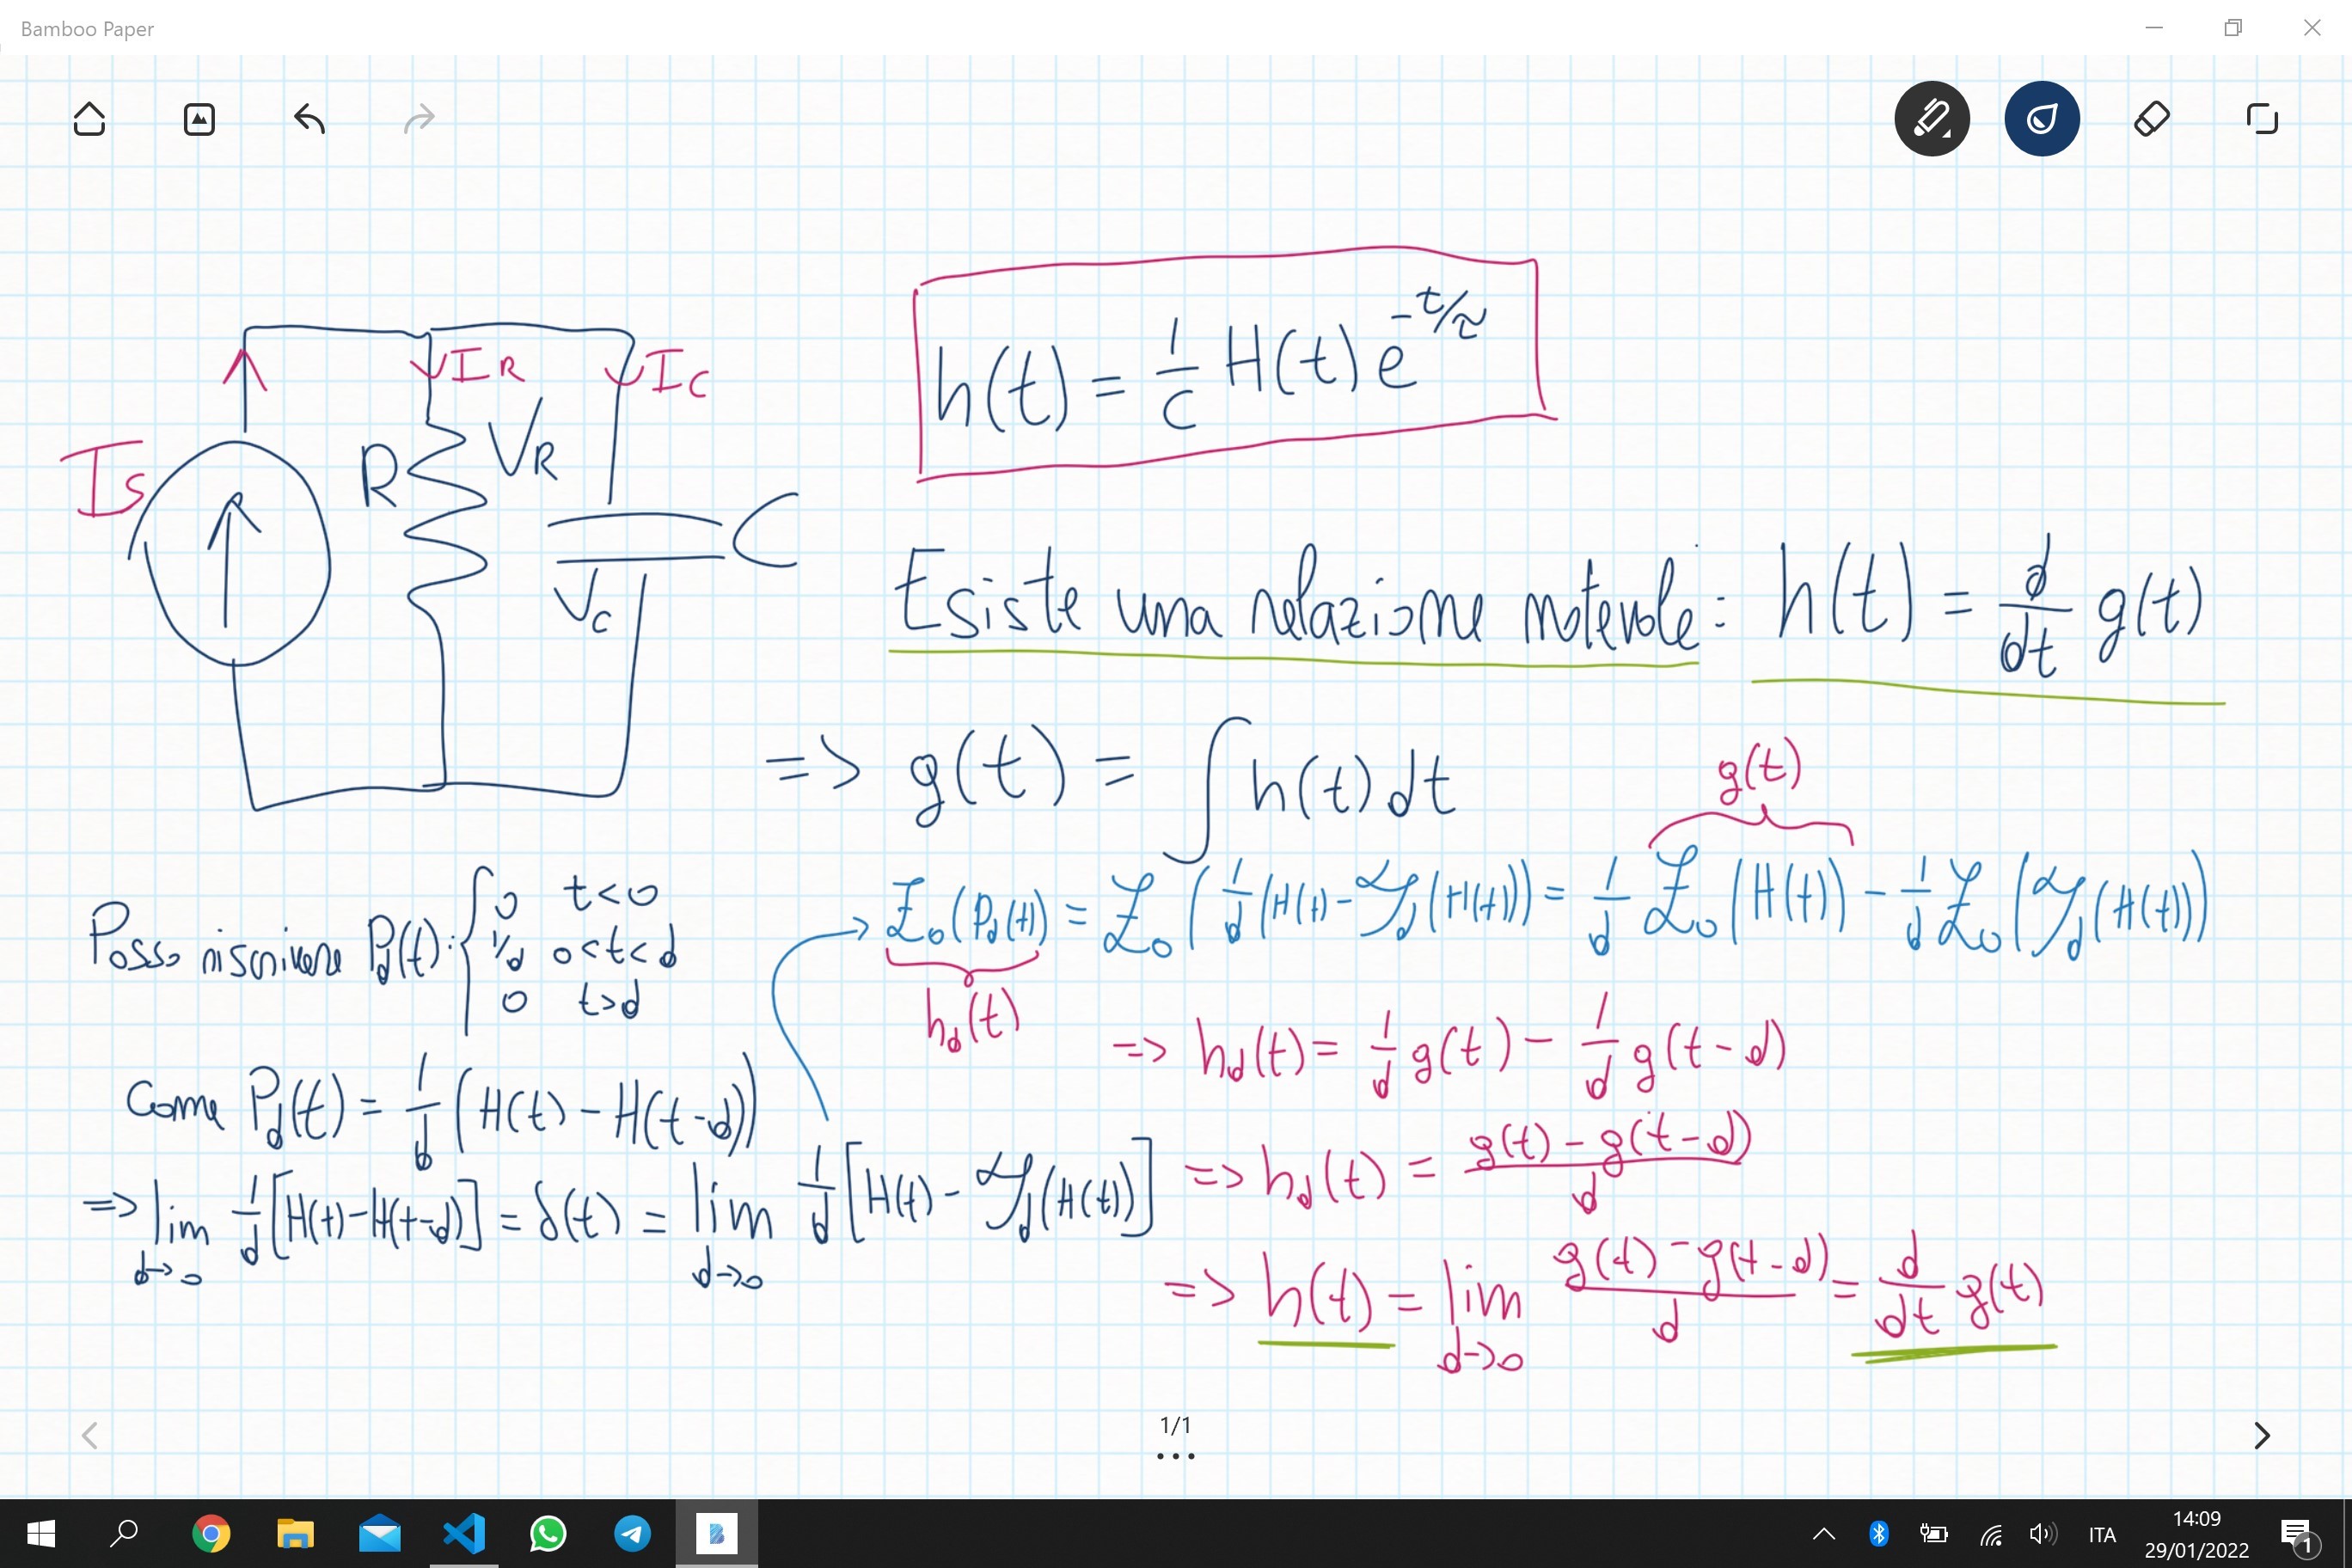 Bamboo Paper
h(t) = 1/C H(t) e^(-t/τ)
Is
IR
IC
R
VR
C
VC
Esiste una relazione notevole: h(t) = d/dt g(t)
=> g(t) = ∫ h(t) dt
g(t)
Posso riscrivere Pd(t): { 0 t<0
1/d 0<t<d
0 t>d
Come Pd(t) = 1/d (H(t) - H(t-d))
=> lim d->0 1/d [H(t) - H(t-d)] = δ(t) = lim d->0 1/d [H(t) - 𝒯d(H(t))]
ℒ0(Pd(t)) = ℒ0(1/d (H(t) - 𝒯d(H(t))) = 1/d ℒ0(H(t)) - 1/d ℒ0(𝒯d(H(t)))
hd(t)
=> hd(t) = 1/d g(t) - 1/d g(t-d)
=> hd(t) = (g(t) - g(t-d))/d
=> h(t) = lim d->0 (g(t) - g(t-d))/d = d/dt g(t)
1/1
ITA
14:09
29/01/2022
1